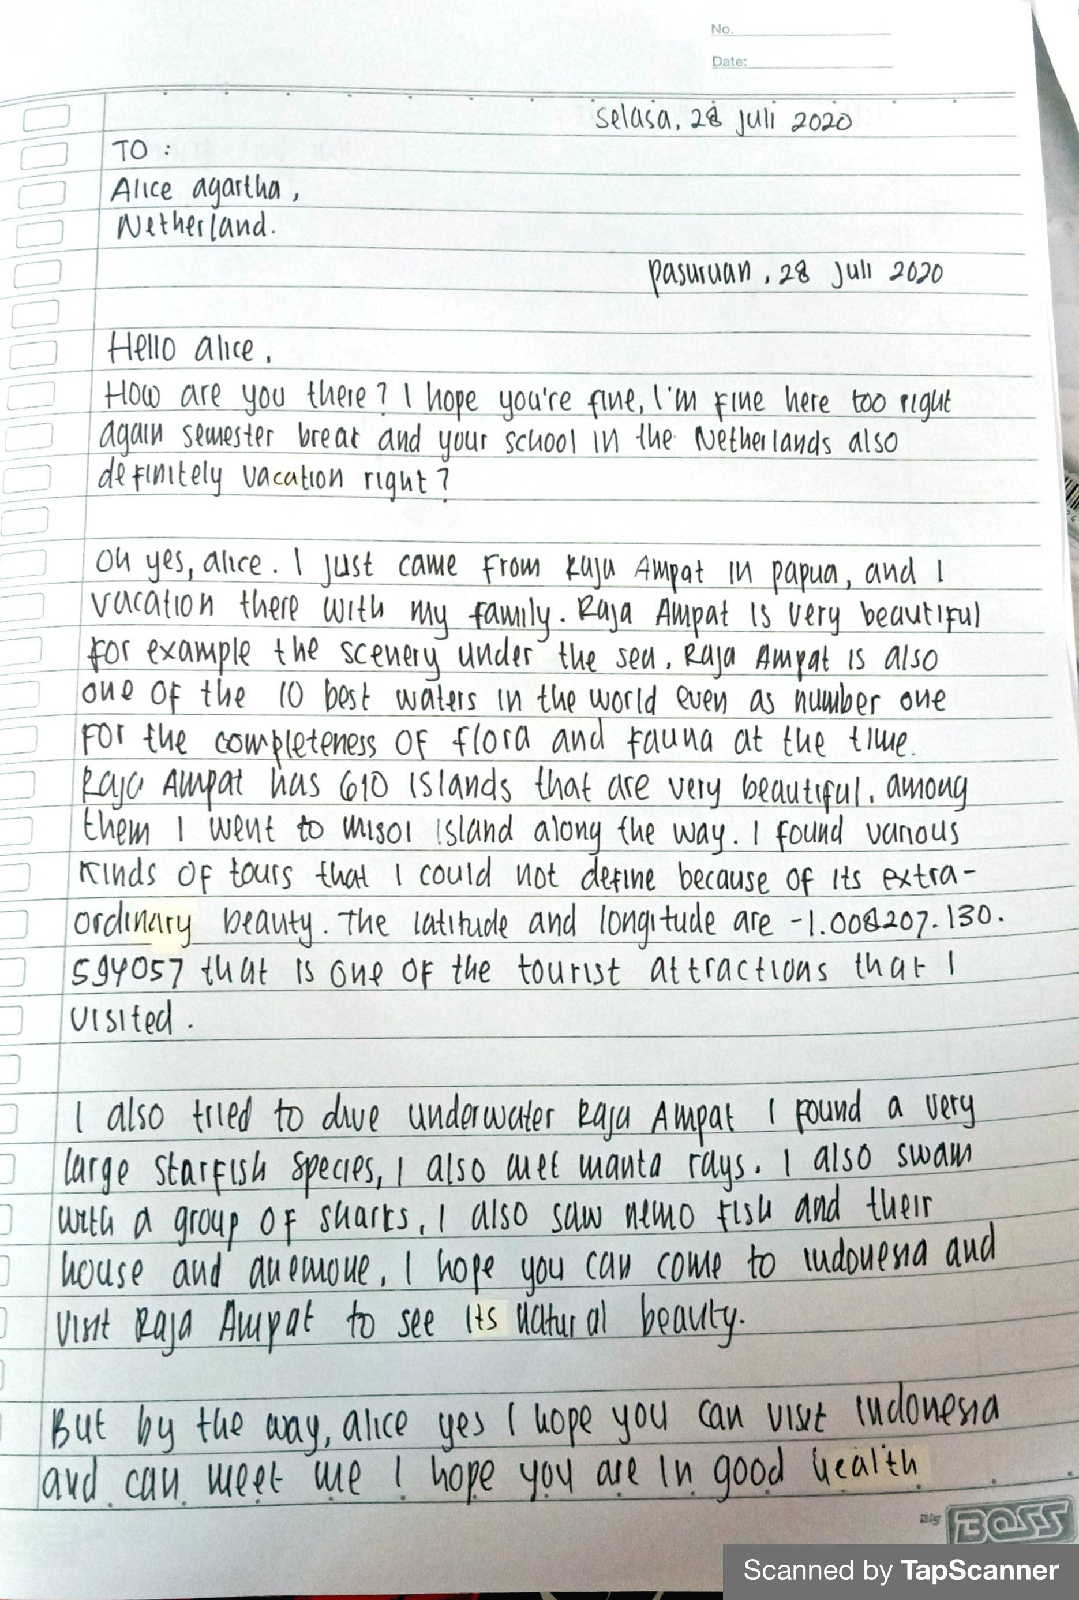 No.
Date:
Selasa, 28 juli 2020
TO :
Alice agartha,
Netherland.
pasuruan, 28 juli 2020
Hello alice,
How are you there? I hope you're fine, I'm fine here too right
again semester break and your school in the Netherlands also
definitely vacation right?
Oh yes, alice. I just came from Raja Ampat in papua, and I
vacation there with my family. Raja Ampat is very beautiful
for example the scenery under the sea, Raja Ampat is also
one of the 10 best waters in the world even as number one
for the completeness of flora and fauna at the time.
Raja Ampat has 610 islands that are very beautiful. among
them I went to misol island along the way. I found various
kinds of tours that I could not define because of its extra-
ordinary beauty. The latitude and longitude are -1.008207.130.
594057 that is one of the tourist attractions that I
visited.
I also tried to dive underwater Raja Ampat I found a very
large starfish species, I also met manta rays. I also swam
with a group of sharks, I also saw nemo fish and their
house and anemone, I hope you can come to indonesia and
visit Raja Ampat to see its natural beauty.
But by the way, alice yes I hope you can visit indonesia
and can meet me I hope you are in good health
Big BOSS
Scanned by TapScanner